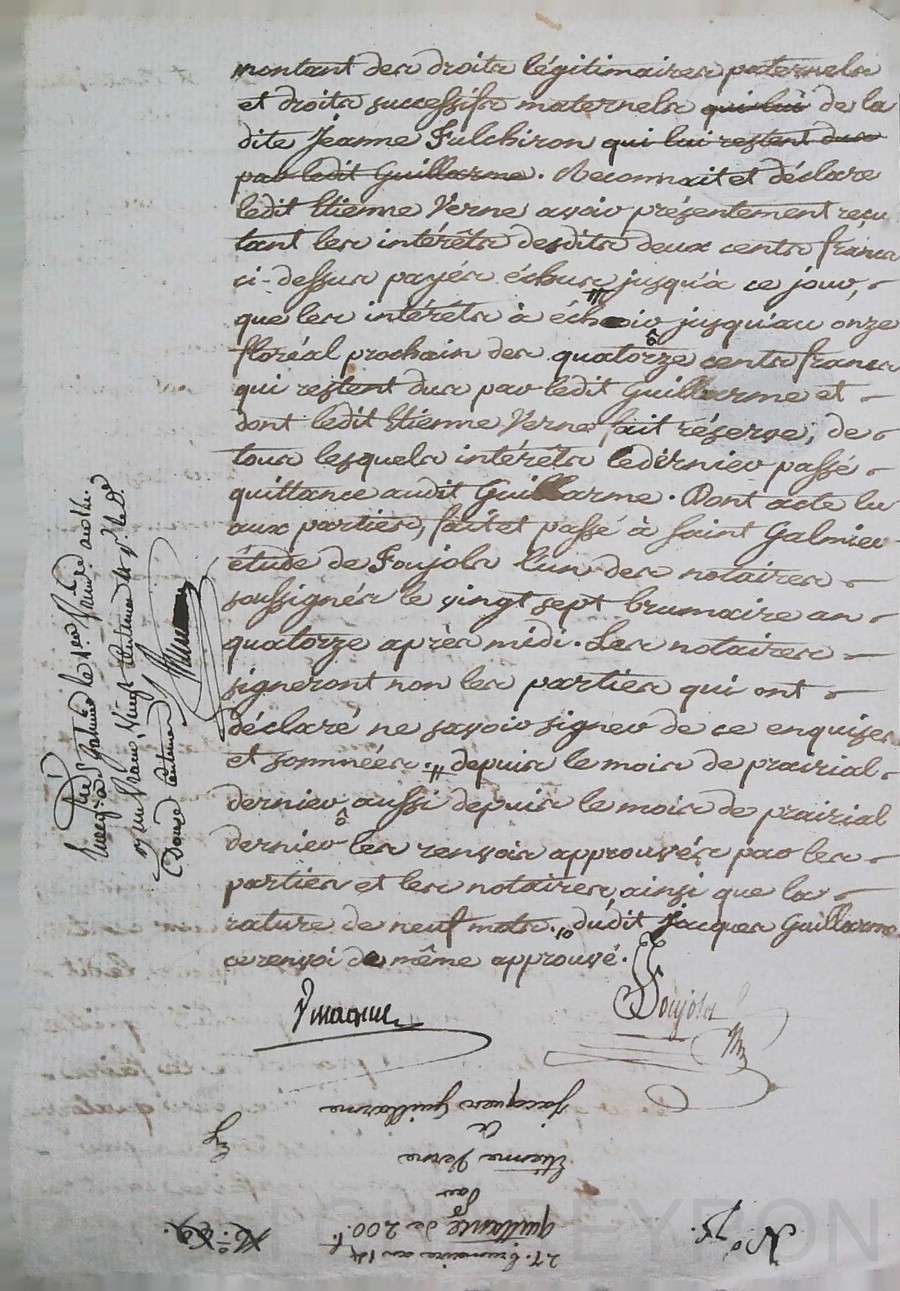 montant des droits légitimaires paternels
et droits successifs maternels qui lui de la
dite Jeanne Fulchiron qui lui restent dus
par ledit Guillarme. Reconnait et déclare
ledit Etienne Verne avoir présentement reçu
tant les intérêts desdits deux cents francs
ci-dessus payés échus jusqu'à ce jour,
que les intérêts à échoir jusqu'au onze
floréal prochain des quatorze cents francs
qui restent dus par ledit Guillarme et
dont ledit Etienne Verne fait réserve; de
tous lesquels intérêts ledernier passé
quittance audit Guillarme. Dont acte lu
aux parties, fait et passé à Saint Galmier
étude de Foujols l'un des notaires
soussignés le vingt sept brumaire an
quatorze après midi. Les notaires
signeront non les parties qui ont
déclaré ne savoir signer de ce enquises
et sommées. // depuis le mois de prairial
dernier, aussi depuis le mois de prairial
dernier les renvois approuvés par les
parties et les notaires, ainsi que la
rature de neuf mots. dudit Jacques Guillarme
ce renvoi de même approuvé.
Foujols
le 1er frimaire an 14.
un franc, vingt centimes
Douze centimes
N.o 75.
27. brumaire an 14
quittance de 200 f.
par
Etienne Verne
à
Jacques Guillarme
PEYRON